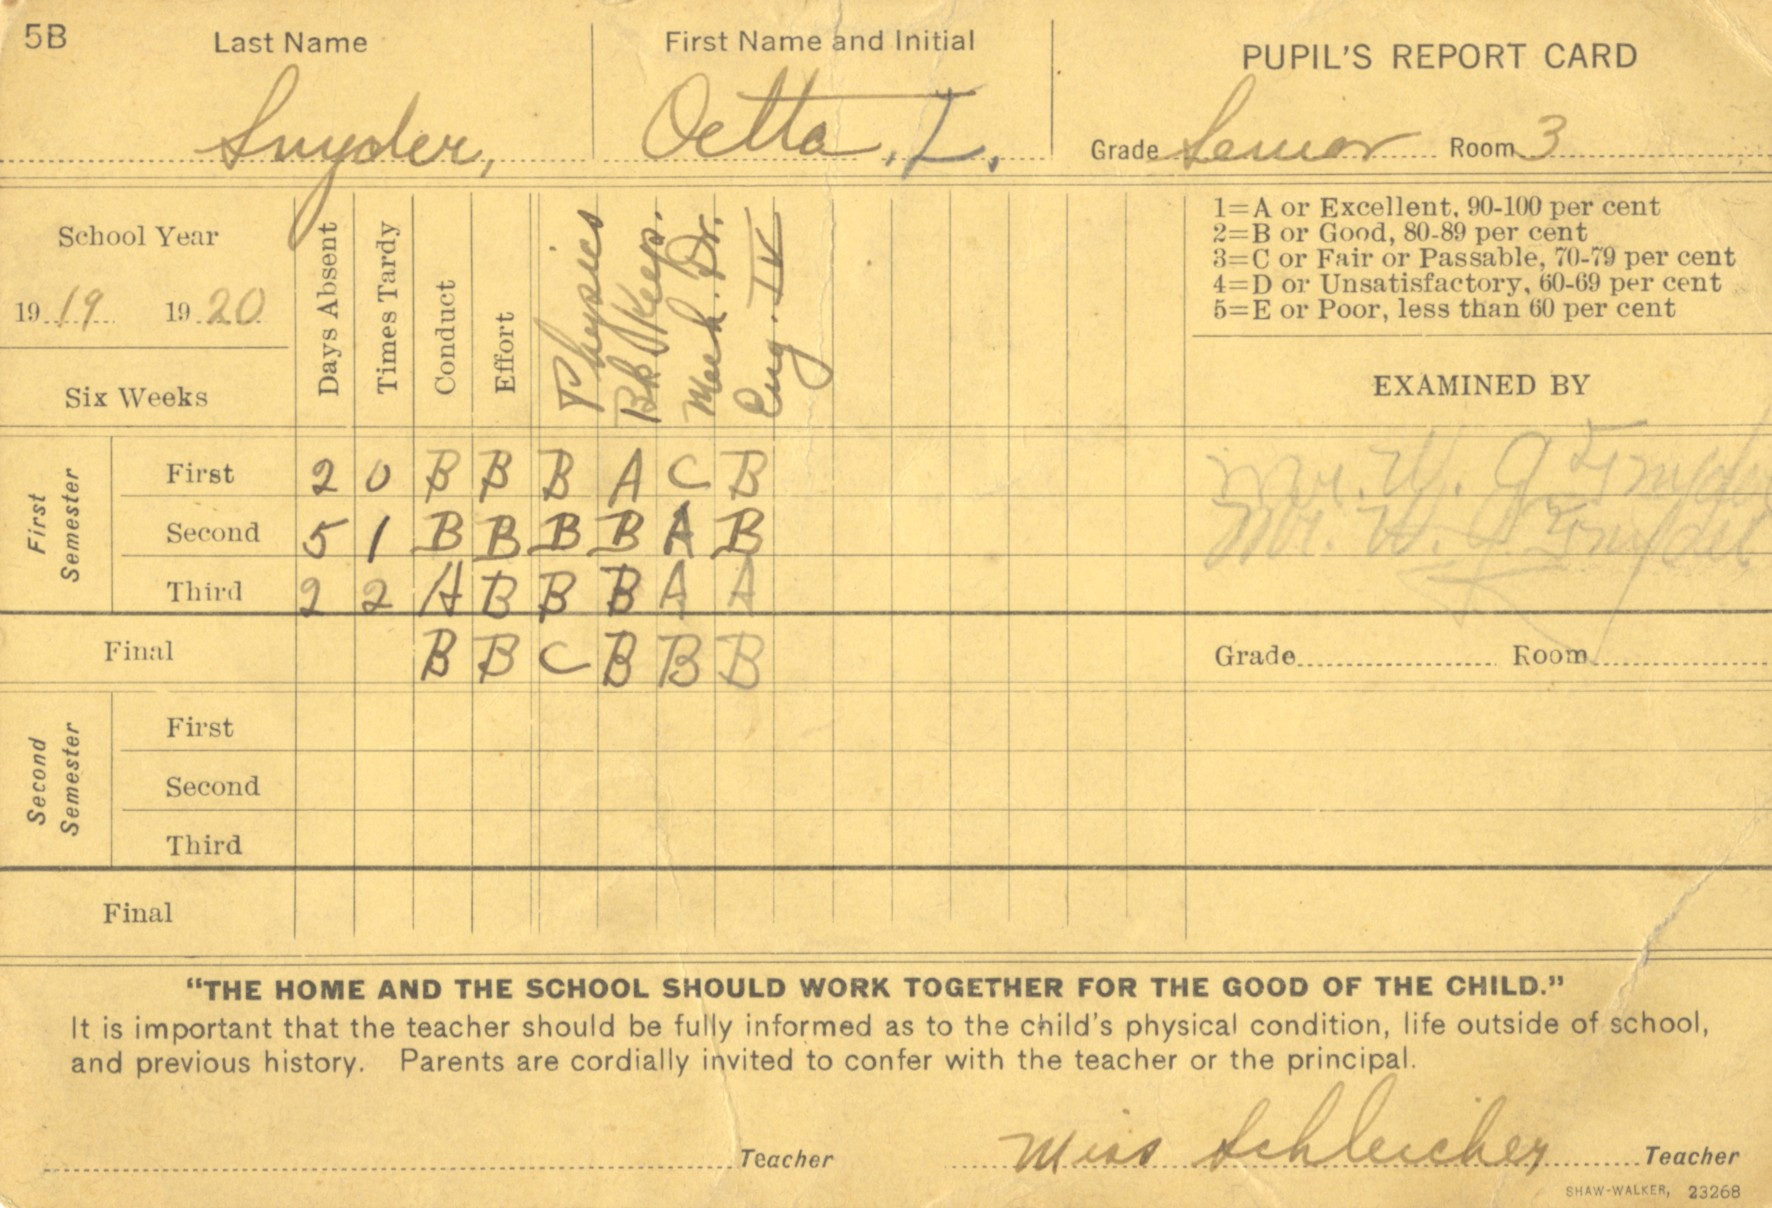 5B Last Name First Name and Initial PUPIL'S REPORT CARD
Snyder, Oetta, L. Grade Senior Room 3
School Year
19 19 19 20
Six Weeks
Days Absent
Times Tardy
Conduct
Effort
Physics
Bk Keep.
Mech. Dr.
Eng. IV
1=A or Excellent, 90-100 per cent
2=B or Good, 80-89 per cent
3=C or Fair or Passable, 70-79 per cent
4=D or Unsatisfactory, 60-69 per cent
5=E or Poor, less than 60 per cent
EXAMINED BY
First Semester
First 2 0 B B B A C B Mr. W. J. Snyder
Second 5 1 B B B B A B Mr. W. J. Snyder
Third 2 2 A B B B A A
Final B B C B B B Grade Room
Second Semester
First
Second
Third
Final
"THE HOME AND THE SCHOOL SHOULD WORK TOGETHER FOR THE GOOD OF THE CHILD."
It is important that the teacher should be fully informed as to the child's physical condition, life outside of school,
and previous history. Parents are cordially invited to confer with the teacher or the principal.
Teacher Miss Schleicher Teacher
SHAW-WALKER, 23268